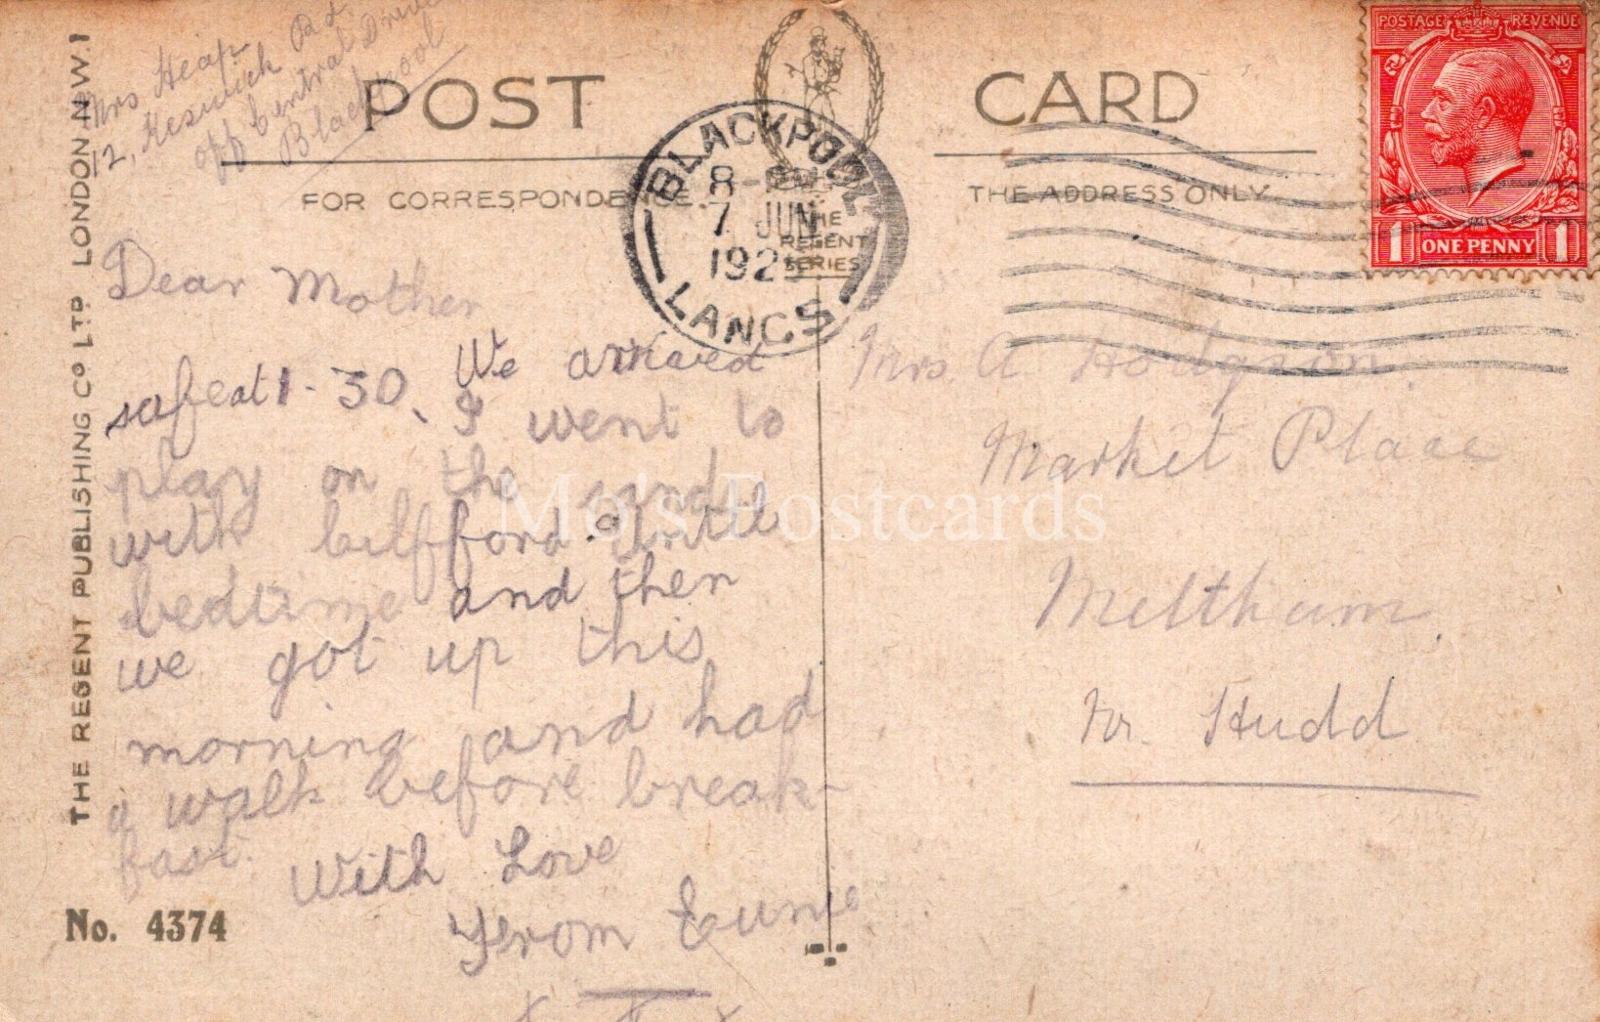 Mrs Heap
12, Keswick Rd
opp Central Drive
Blackpool
POST CARD
FOR CORRESPONDENCE.
THE ADDRESS ONLY
THE REGENT SERIES
BLACKPOOL
8-
7 JUN
192
LANCS
POSTAGE REVENUE
1 ONE PENNY 1
THE REGENT PUBLISHING CO LTD LONDON N.W.1
Dear Mother
We arived
safe at 1-30. I went to
play on the sands
with bilfford until
bedtime and then
we got up this
morning and had
a walk before break-
fast.
With Love
From Eunie
x x x
Mrs. A Hodgson.
Market Place
Meltham.
Nr. Hudd
No. 4374
Mo's Postcards